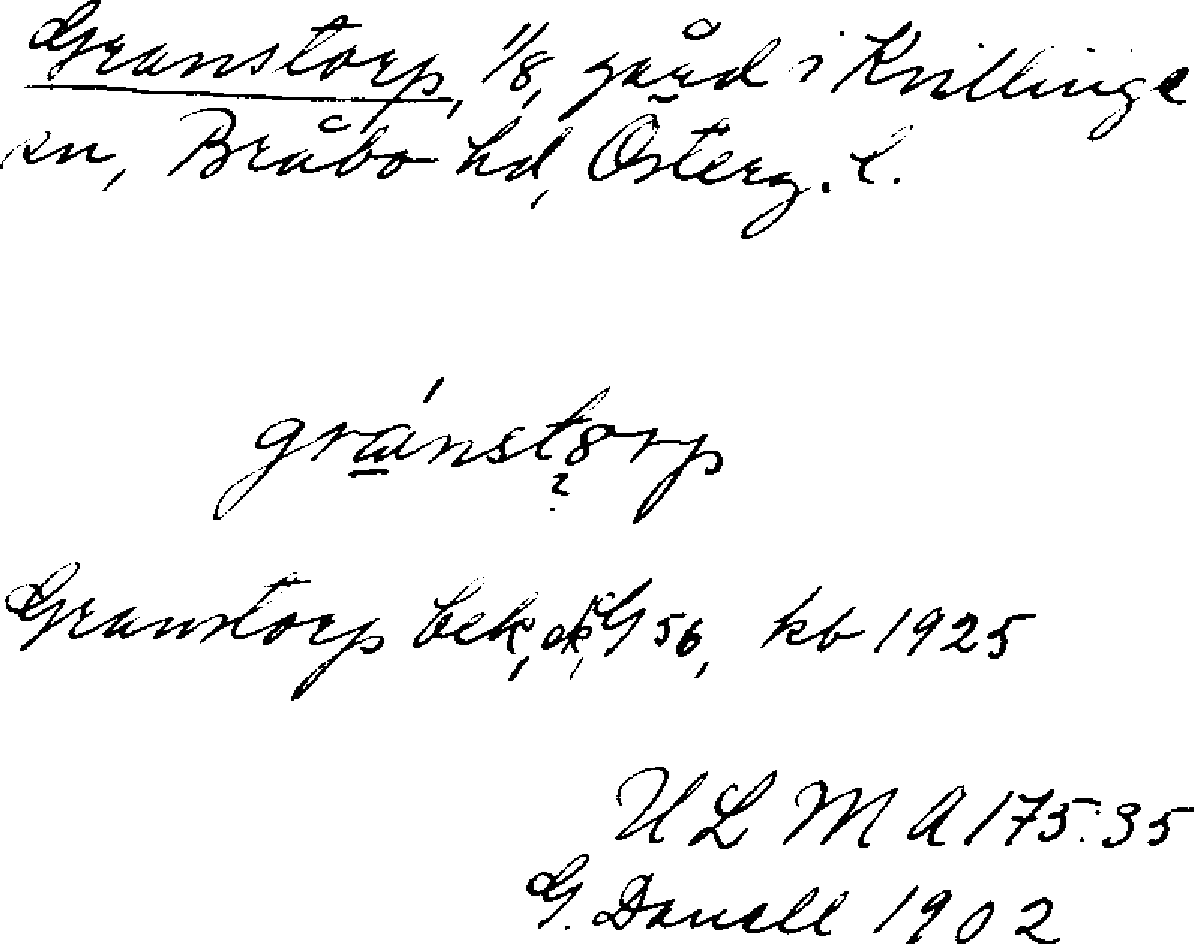 Granstorp, 1/8, gård i Kvillinge
sn, Bråbo hd, Österg. l.
gránstorp
?
Granstorp bek, ek, G 56, kb 1925
ULMA 175:35
G. Danell 1902